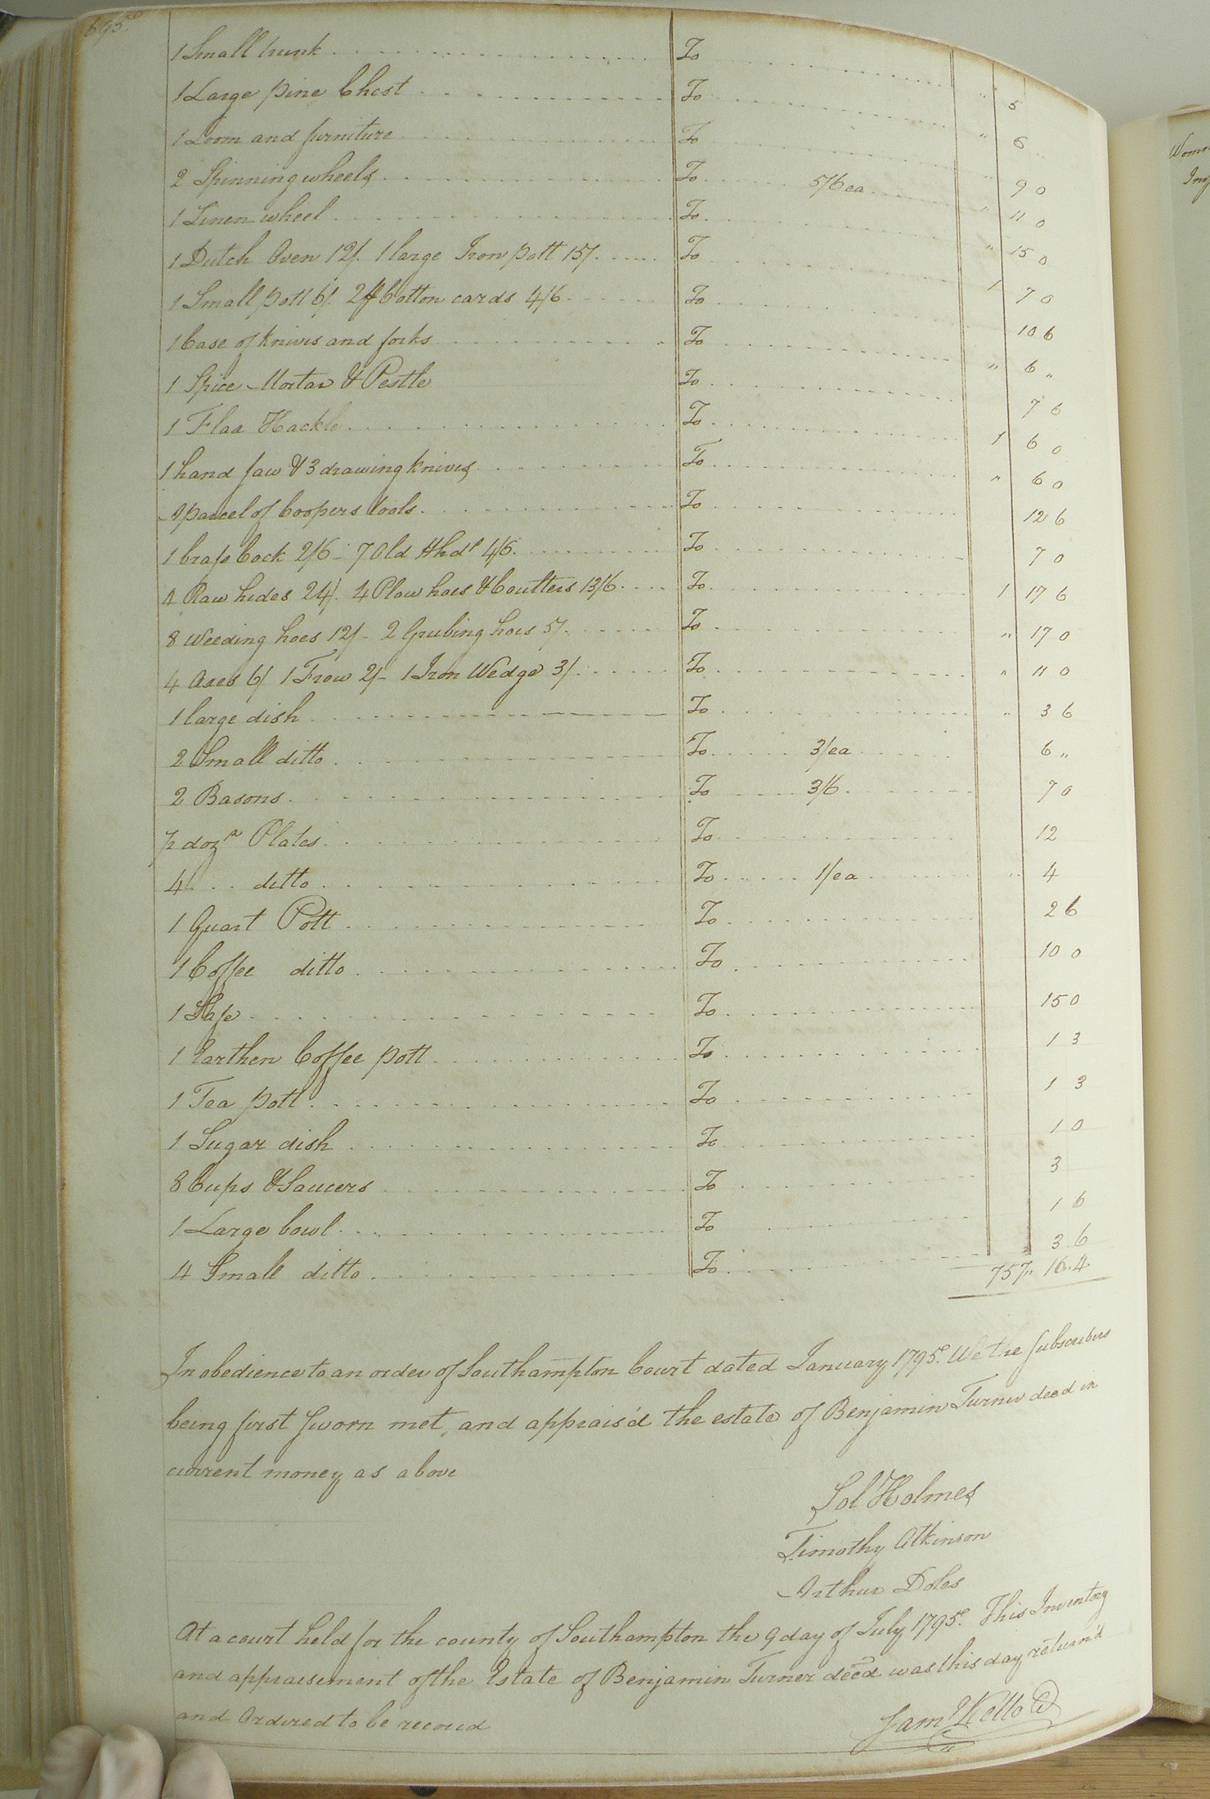 695
1 Small trunk To " 5
1 Large pine Chest To " 6
1 Loom and furniture To 9 0
2 Spinning wheels To 5/6 ea " 11 0
1 Linen wheel To " 15 0
1 Dutch Oven 12/. 1 large Iron pott 15/. To 1 7 0
1 Small pott 6/. 2 Cotton cards 4/6 To 10 6
1 Case of knives and forks To " 6 "
1 Spice Mortar & Pestle To 7 6
1 Flax Hackle To 1 6 0
1 hand saw & 3 drawing knives To " 6 0
A parcel of Coopers tools To 12 6
1 brass Cock 2/6 - 7 Old Hhds 4/6 To 7 0
4 Raw hides 24/. 4 Plow hoes & Coulters 13/6 To 1 17 6
8 Weeding hoes 12/- 2 Grubing hoes 5/. To " 17 0
4 Axes 6/ 1 Frow 2/- 1 Iron Wedge 3/ To " 11 0
1 large dish To " 3 6
2 Small ditto To 3/ea 6 "
2 Basons To 3/6 7 0
1/2 dozn Plates To 12
4 .. ditto To 1/ea " 4
1 Quart Pott To 2 6
1 Coffee ditto To 10 0
1 Safe To 15 0
1 Earthen Coffee pott To 1 3
1 Tea pott To 1 3
1 Sugar dish To 1 0
8 Cups & Saucers To 3
1 Large bowl To 1 6
4 Small ditto To 3 6
757 " 16 . 4
In obedience to an order of Southampton Court dated January 1795. We the Subscribers
being first sworn met, and apprais'd the estate of Benjamin Turner decd in
current money as above
Sol Holmes
Timothy Atkinson
Arthur Doles
At a court held for the county of Southampton the 9 day of July 1795. This Inventory
and appraisement of the Estate of Benjamin Turner decd was this day return'd
and Ordered to be record
Saml Kello
Wome